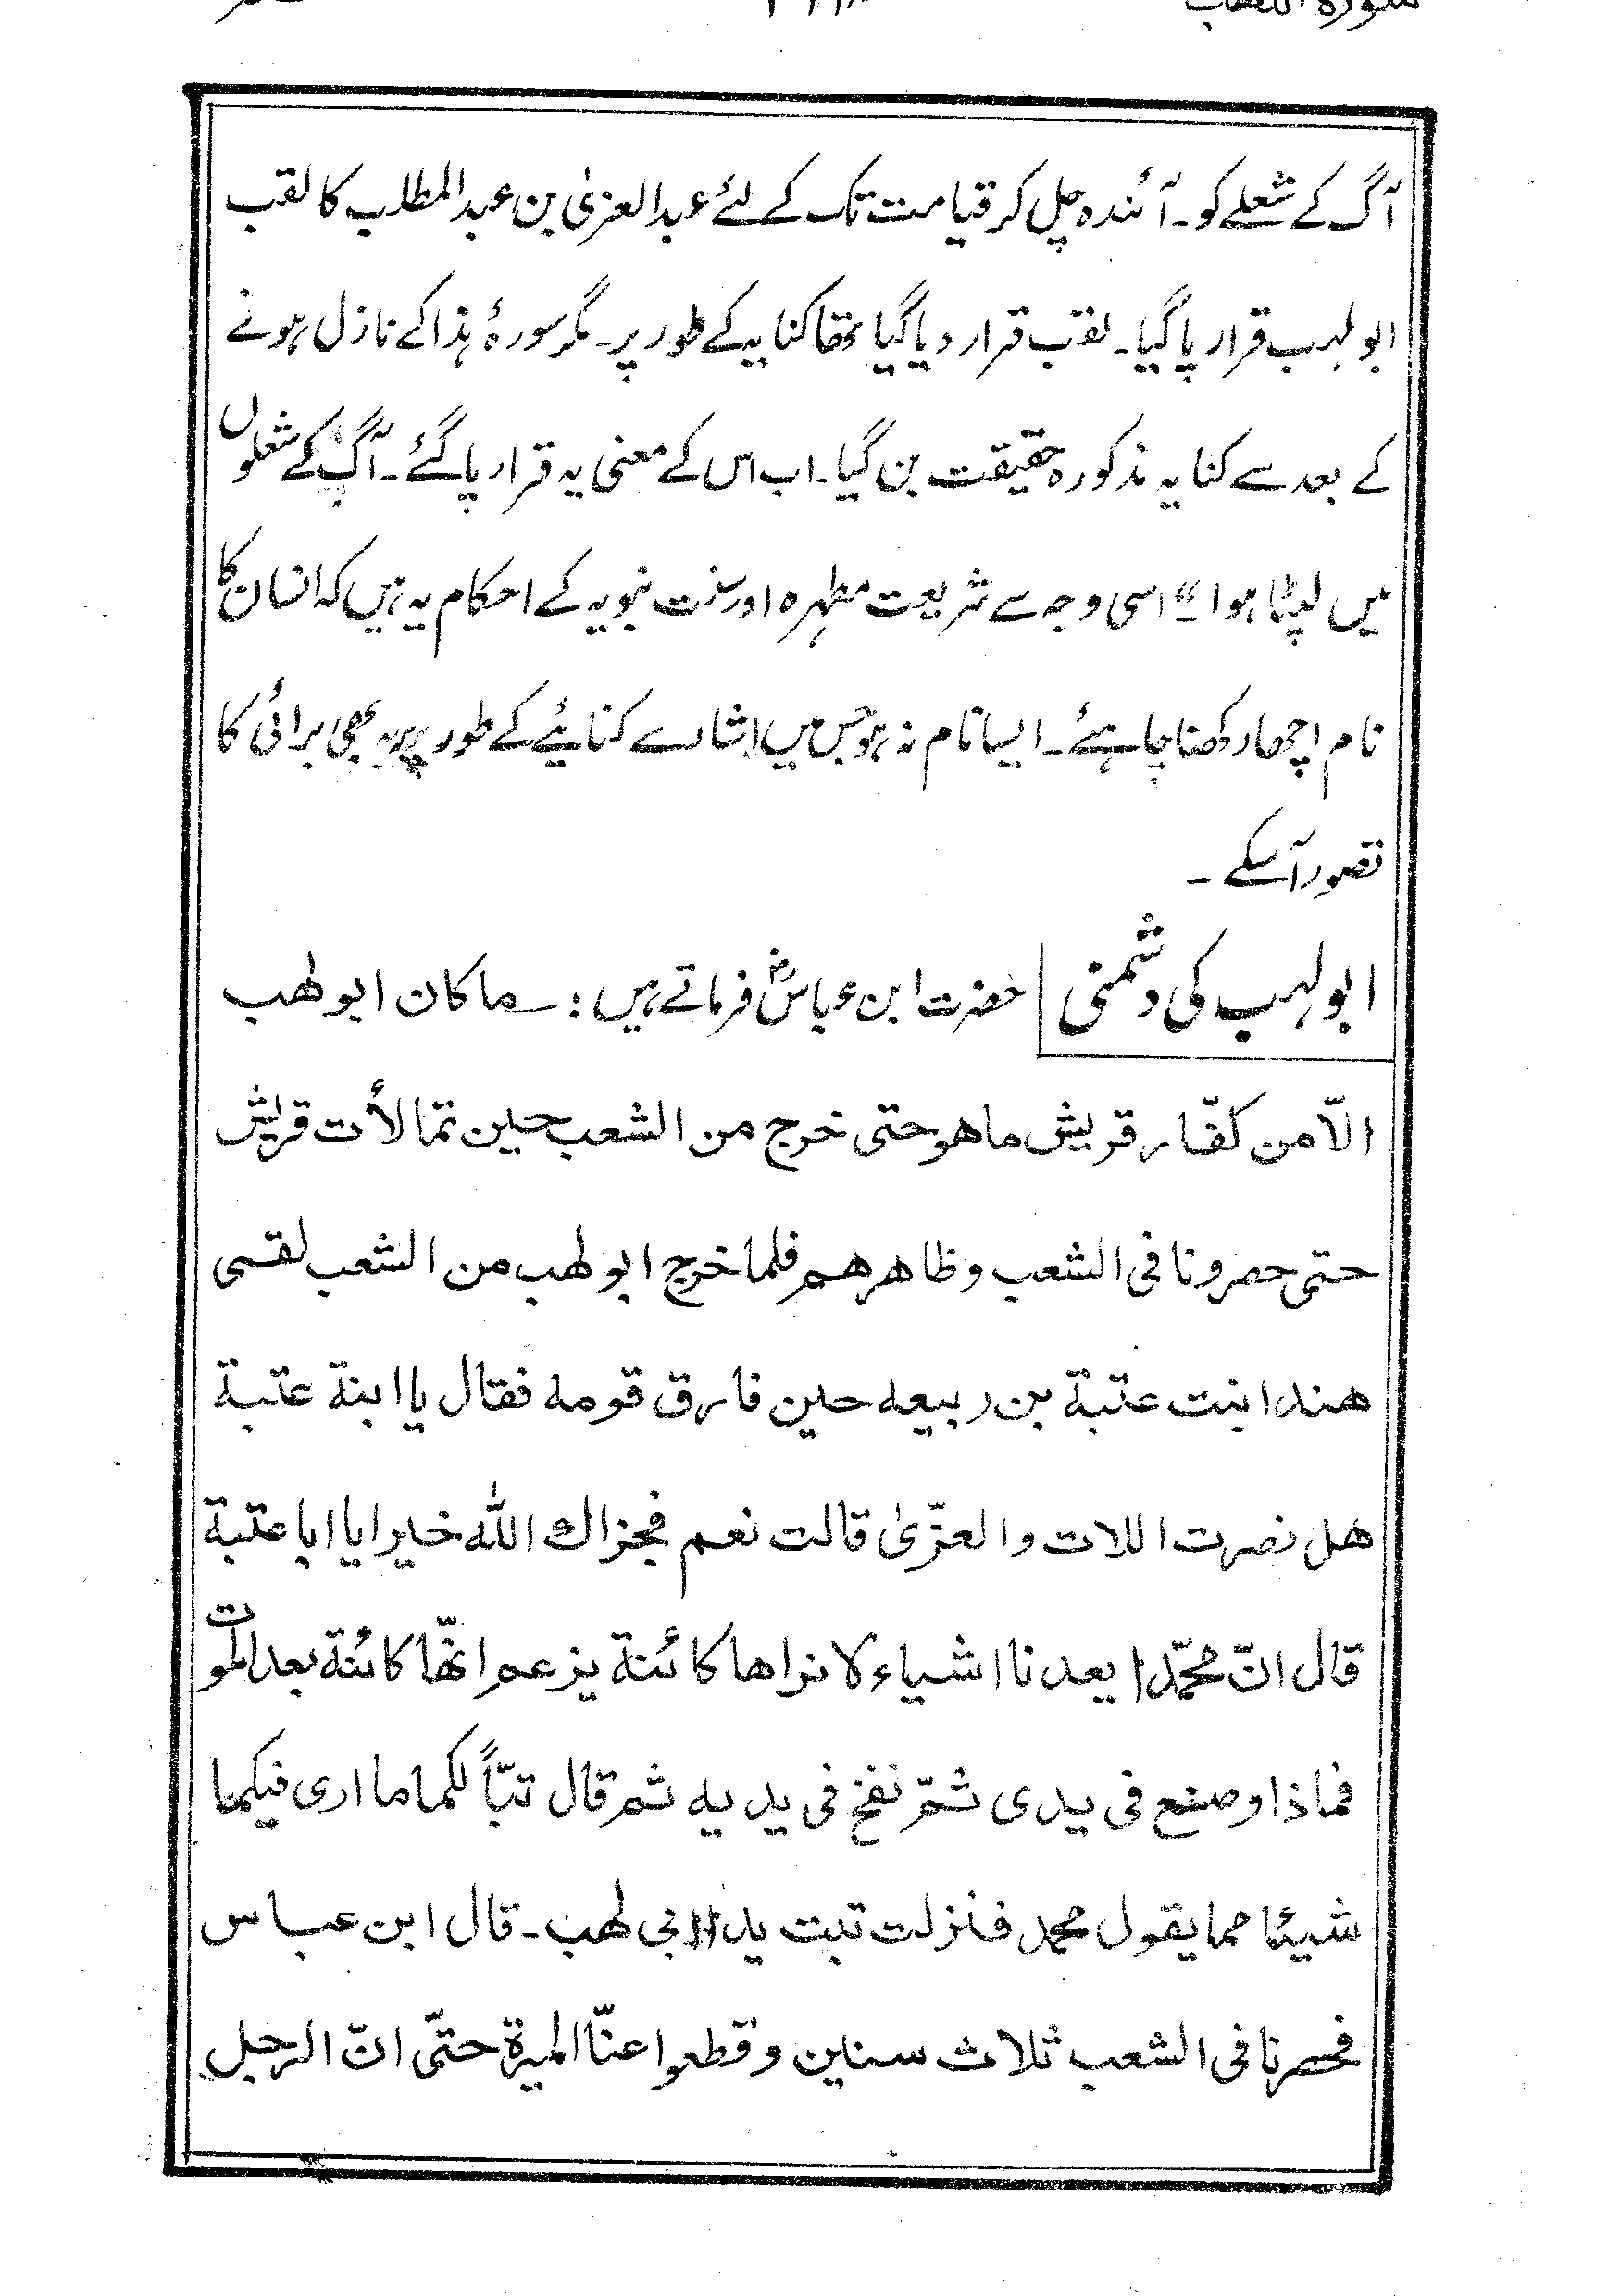 آگ کے شعلے کو۔ آئندہ چل کر قیامت تک کے لئے عبدالعزیٰ بن عبدالمطلب کا لقب
ابولہب قرار پا گیا۔ لقب قرار دیا گیا تھا کنایہ کے طور پر۔ مگر سورۂ ہذا کے نازل ہونے
کے بعد سے کنایہ مذکورہ حقیقت بن گیا۔ اب اس کے معنی یہ قرار پا گئے۔ آگ کے شعلوں
میں لپٹا ہوا ۔" اسی وجہ سے شریعت مطہرہ اور سنت نبویہ کے احکام یہ ہیں کہ انسان کا
نام اچھا رکھنا چاہئے۔ ایسا نام نہ ہو جس میں اشارے کنائیے کے طور پر یہ بھی برائی کا
تصور آسکے ۔
ابولہب کی دشمنی حضرت ابن عباسؓ فرماتے ہیں : ما کان ابو لھب
الّا من کفّار قریش ما ھو حتی خرج من الشعب حین تمالأت قریش
حتی حصرونا فی الشعب وظاھرھم فلما خرج ابو لھب من الشعب لقسی
ھندا بنت عتبة بن ربیعه حین فارق قومه فقال یا ابنة عتبة
ھل نصرت اللات والعزّیٰ قالت نعم فجزاك اللّٰه خیرا یا ابا عتبة
قال انّ محمّدا یعدنا اشیاء لا نراھا کائنة یزعم انّھا کائنة بعد الموت
فماذا وصنع فی یدی ثمّ نفخ فی یدیه ثم قال تبّاً لکما ما اری فیکما
شیئا مما یقول محمد فنزلت تبت یدا ابی لھب۔ قال ابن عباس
فحصرنا فی الشعب ثلاث سنین وقطعوا عنّا المیرة حتّی انّ الرجل